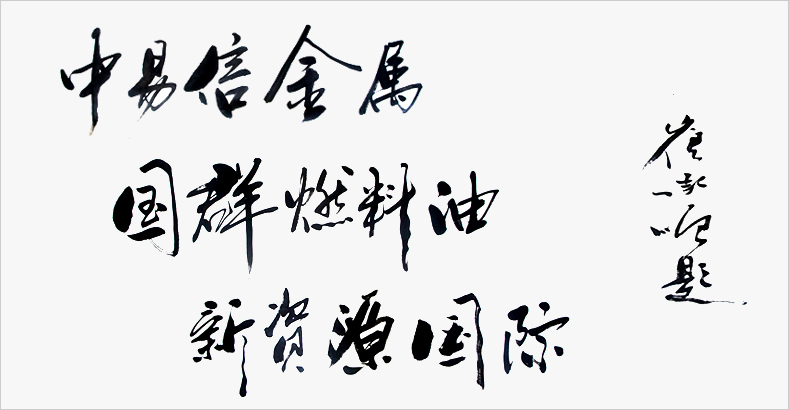 中易信金属
国群燃料油
新资源国际
题